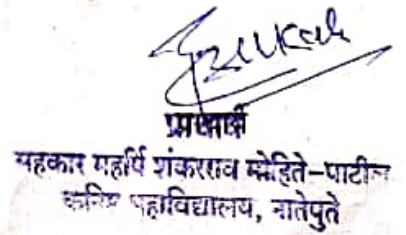 प्राचार्य
सहकार महर्षि शंकरराव मोहिते-पाटील
कनिष्ठ महाविद्यालय, नातेपुते